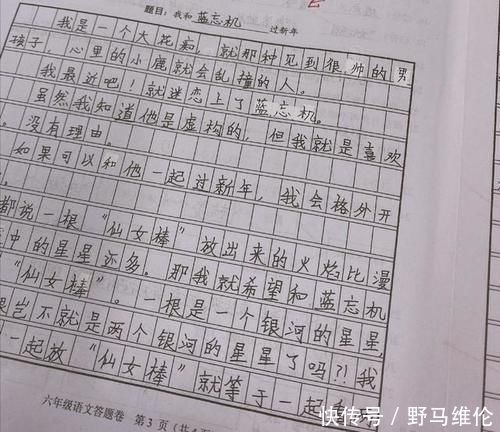 题目：我和蓝忘机过新年
我是一个大花痴，就那种见到很帅的男
孩子，心里的小鹿就会乱撞的人。
我最近吧！就迷恋上了蓝忘机。
虽然我知道他是虚构的，但我就是喜欢
，没有理由。
如果可以和他一起过新年，我会格外开
都说一根“仙女棒”放出来的火焰比漫
中的星星还多。那我就希望和蓝忘机
“仙女棒”。一根是一个银河的星星，
岂不就是两个银河的星星了吗？！我
一起放“仙女棒”就等于一起
六年级语文答题卷 第3页（共4
快传号／野马维伦